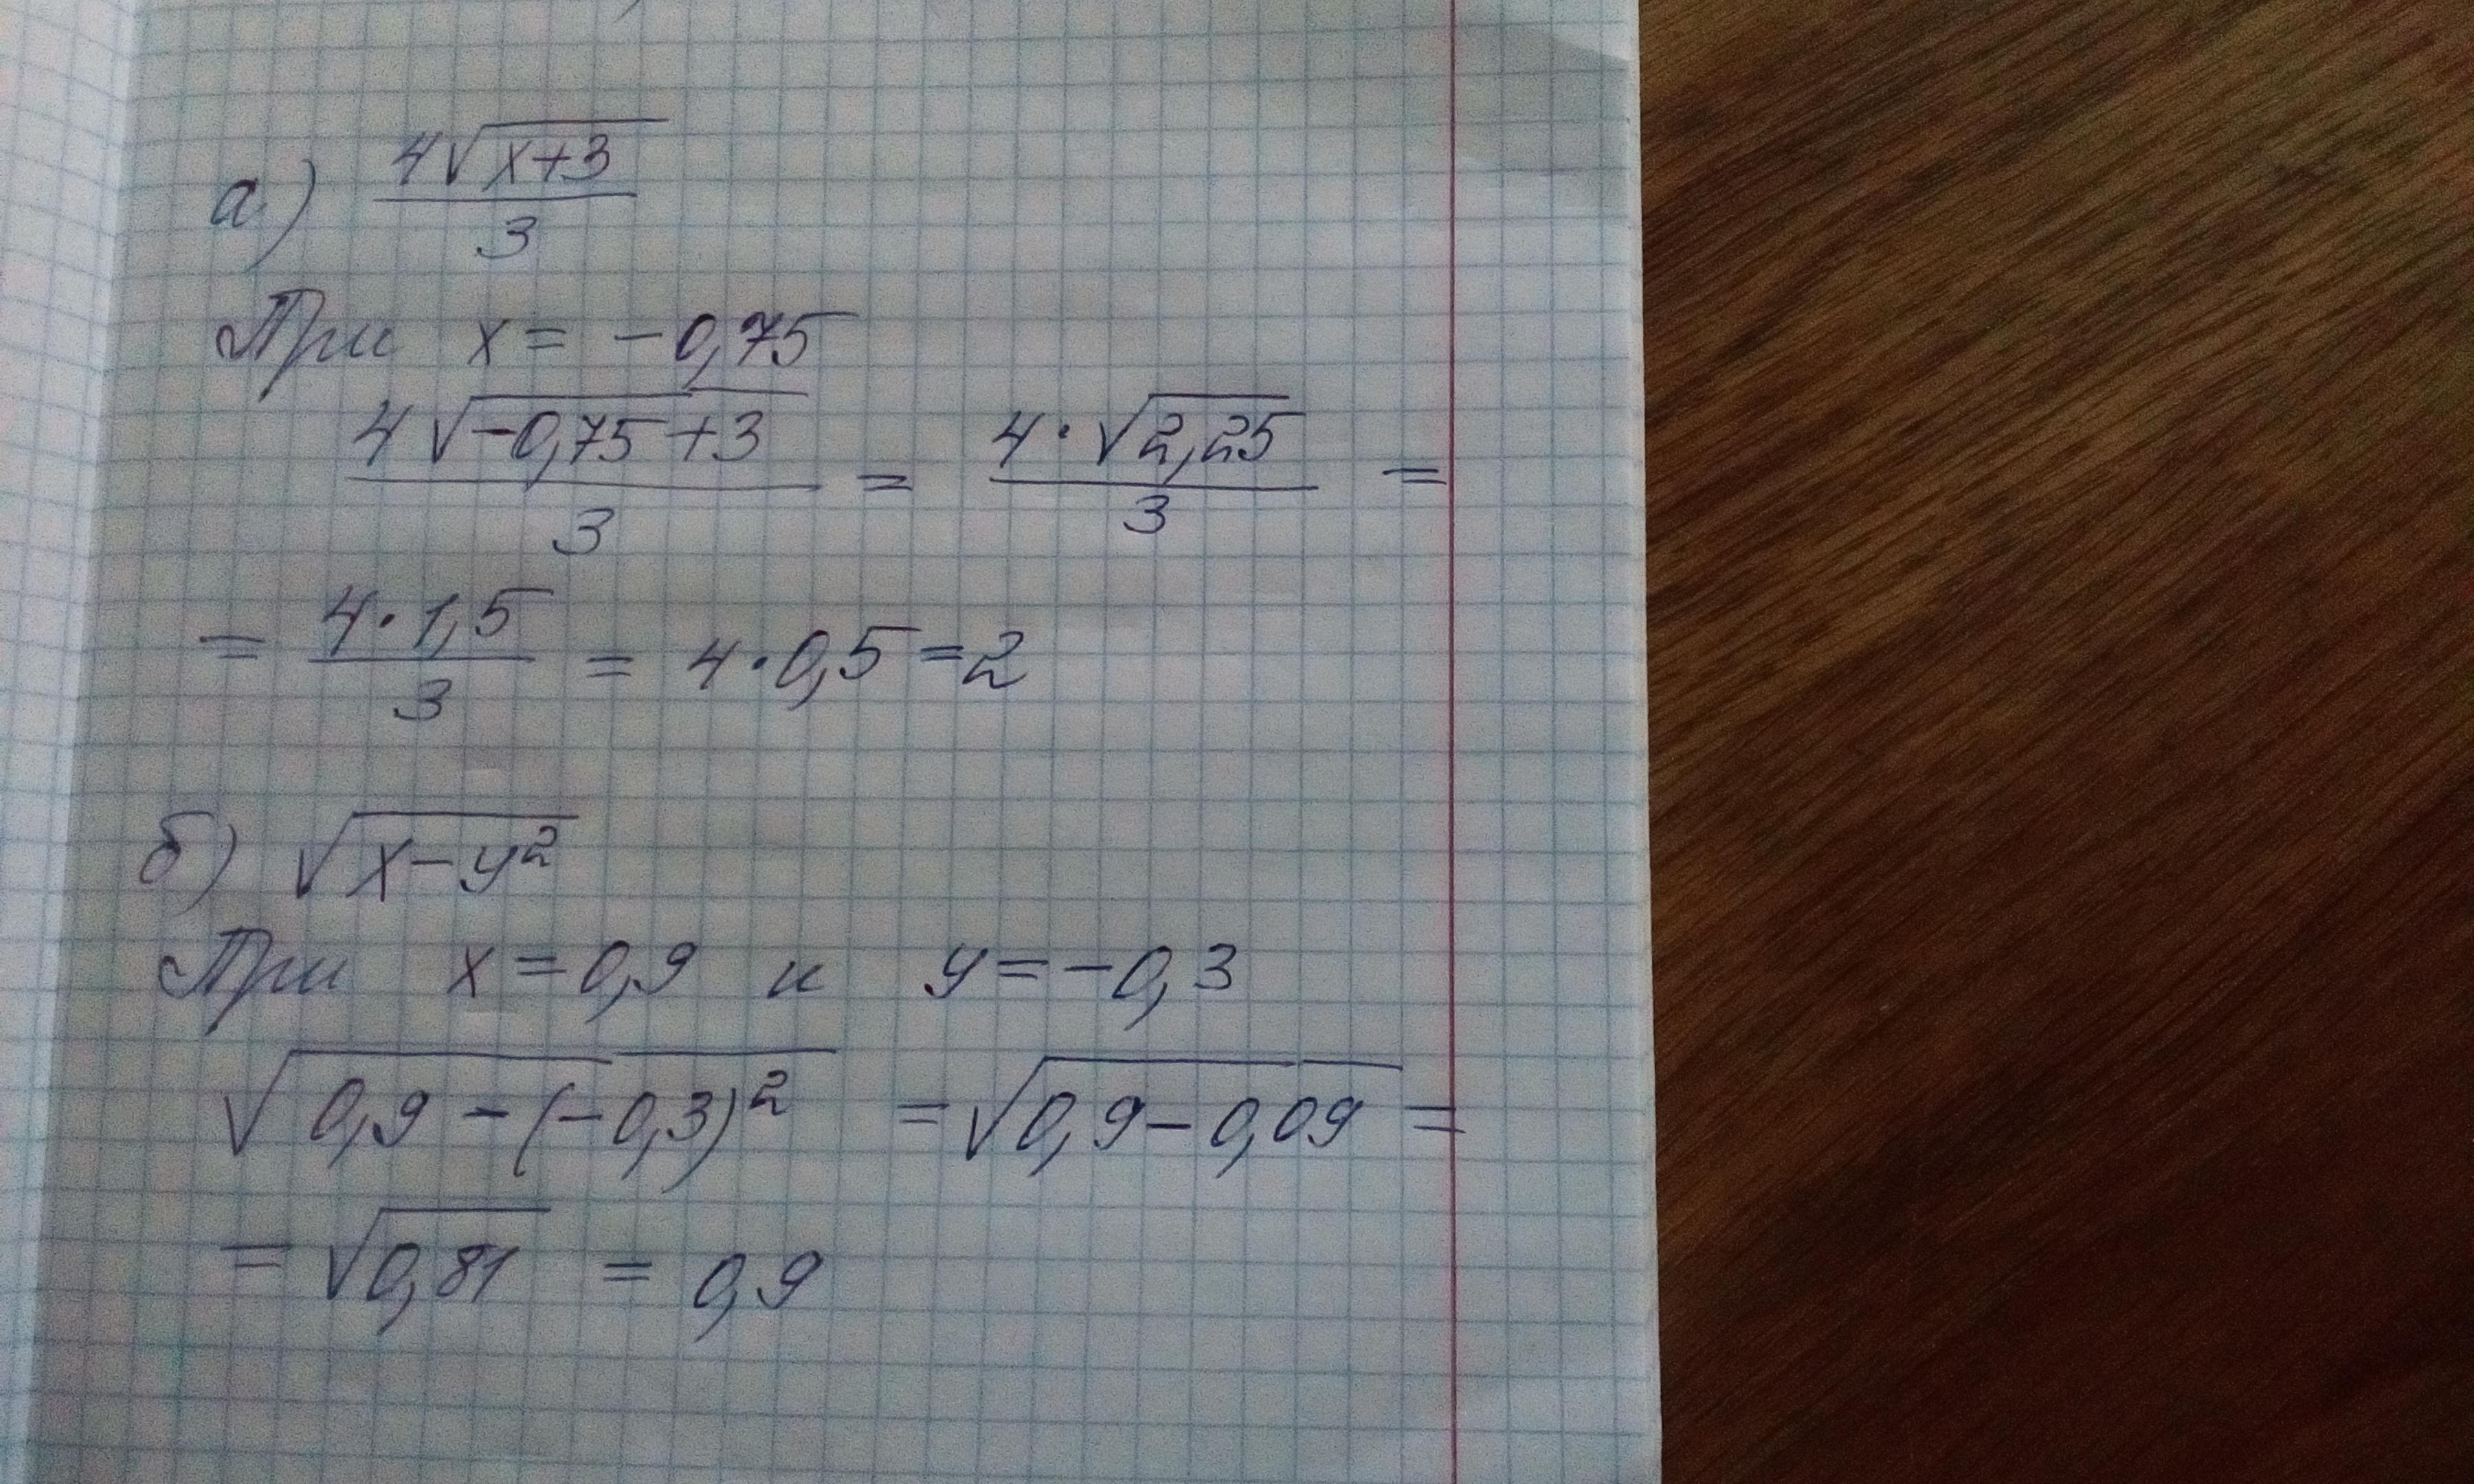 а) 4√(x+3) / 3
При x = -0,75
4√(-0,75+3) / 3 = 4·√2,25 / 3 =
= 4·1,5 / 3 = 4·0,5=2
б) √(x-y²)
При x=0,9 и y=-0,3
√(0,9-(-0,3)²) = √(0,9-0,09) =
= √0,81 = 0,9